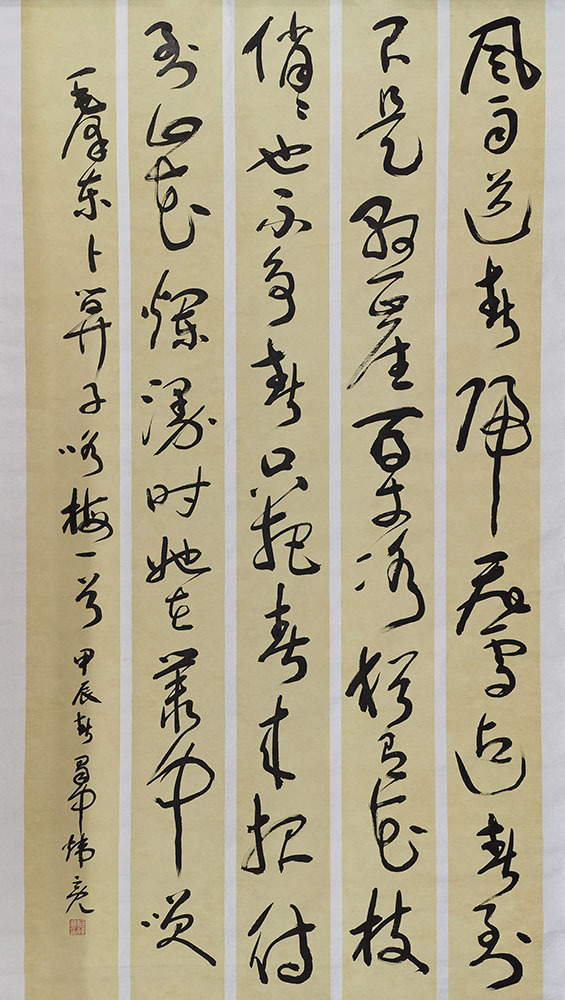 风雨送春归飞雪迎春到
已是悬崖百丈冰犹有花枝
俏々也不争春只把春来报待
到山花烂漫时她在叢中咲
毛泽东卜算子咏梅一首 甲辰春蜀中炜亮